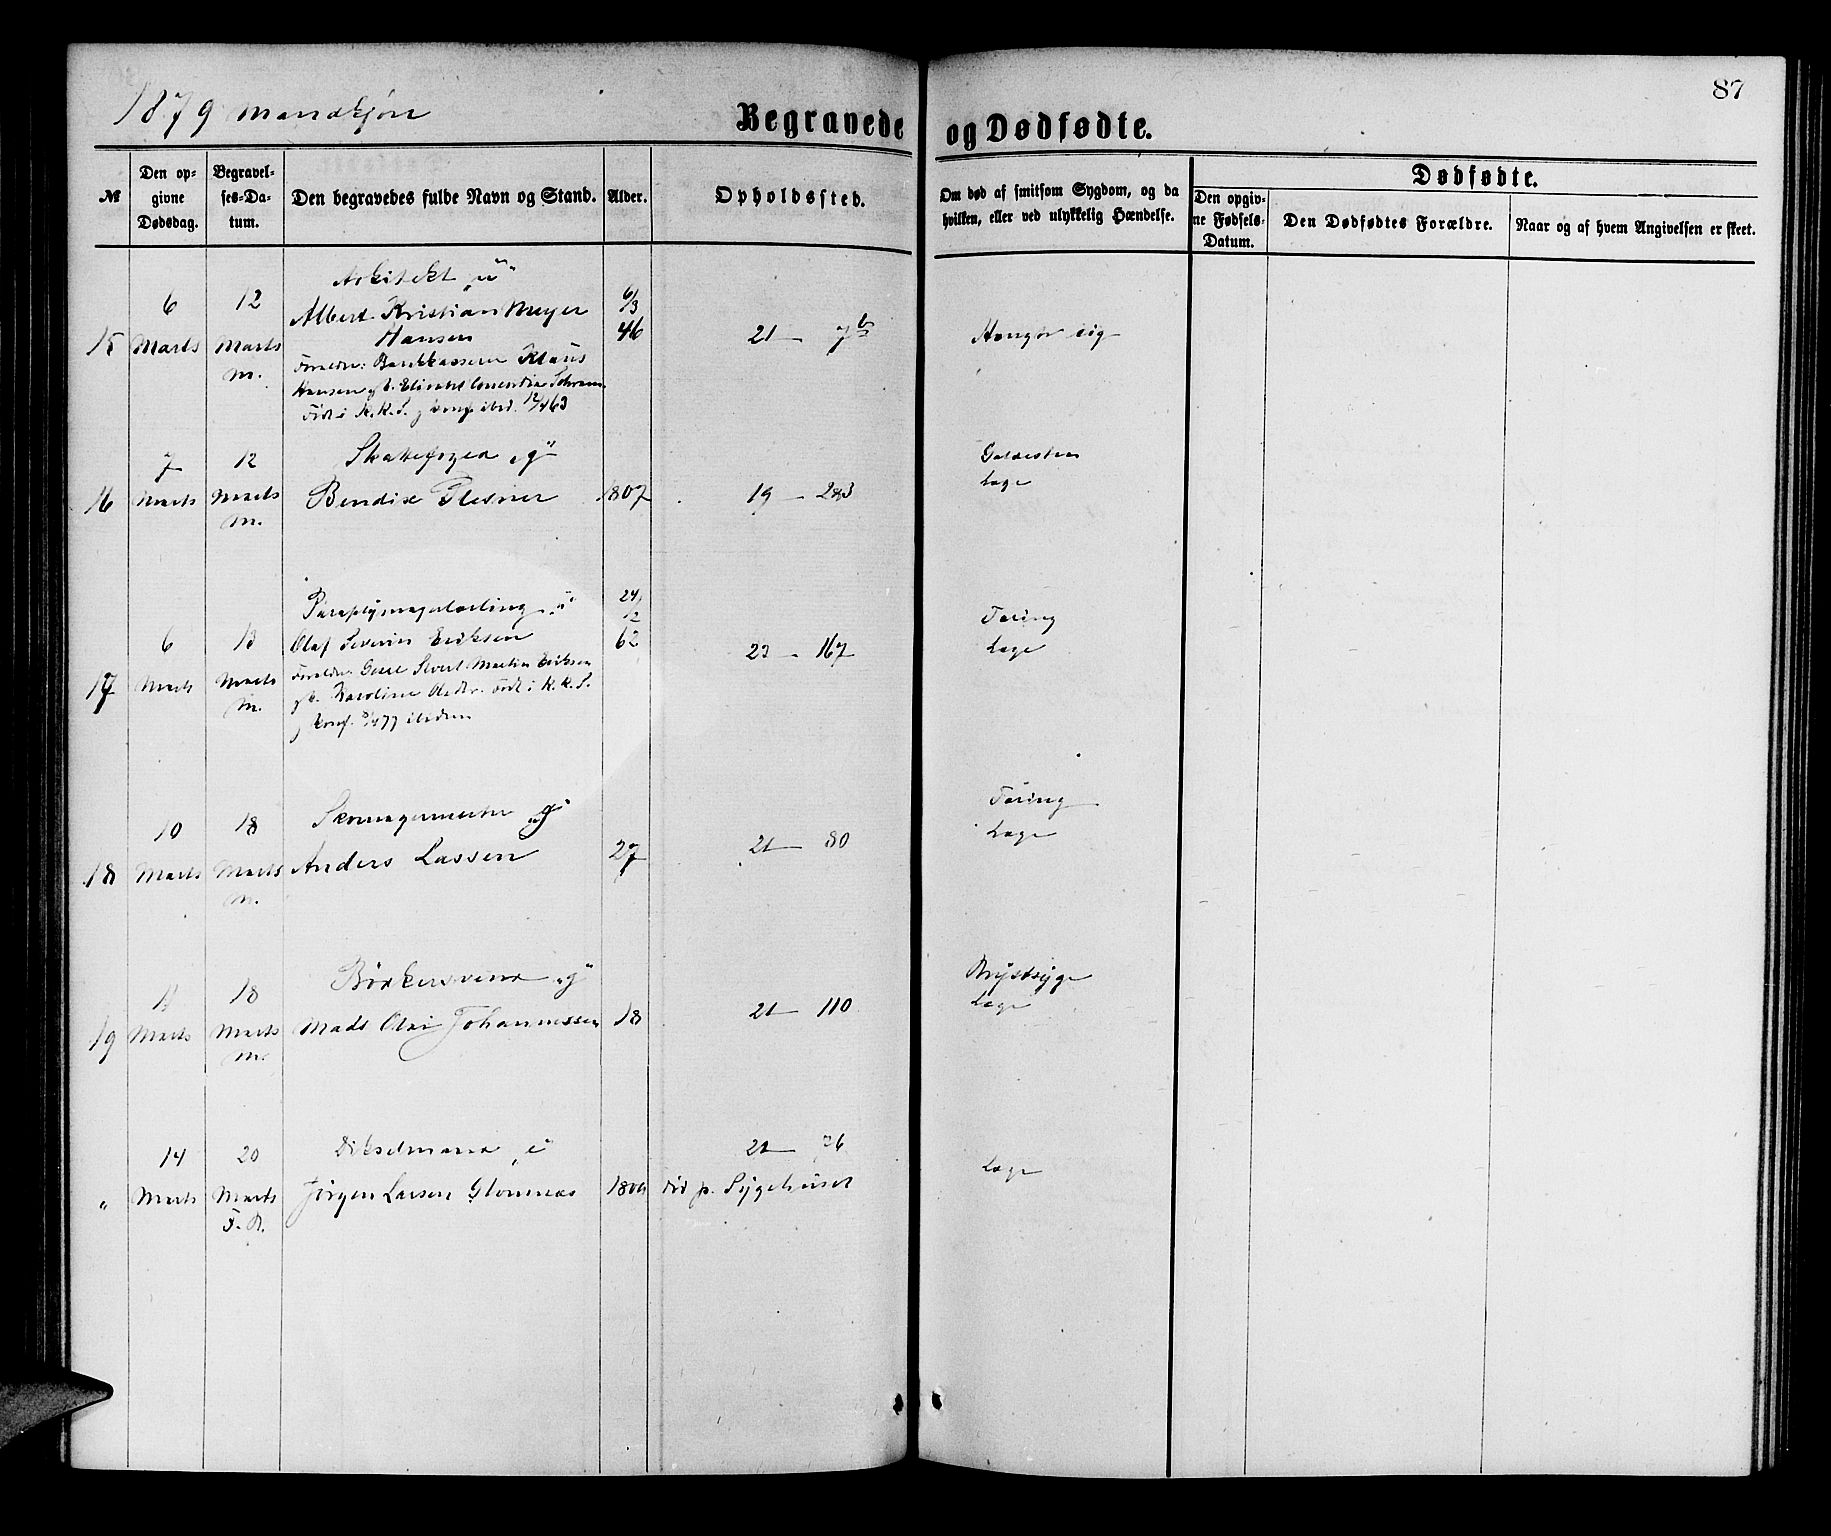 1879 Mandkjøn
Begravede og Dødfødte.
87
№
Den opgivne Dødsdag.
Begravelses-Datum.
Den begravedes fulde Navn og Stand.
Alder.
Opholdssted.
Om død af smitsom Sygdom, og da hvilken, eller ved ulykkelig Hændelse.
Dødfødte.
Den opgivne Fødsels-Datum.
Den Dødfødtes Forældre.
Naar og af hvem Angivelsen er skeet.
15
6 Marts
12 Marts M.
Arkitekt "u"
Albert Kristian Meyer
Hansen
Forældre: Bankkasserer Klaus
Hansen
Født i K.K.S. 12/4 63
6/3 46
21 — 7b
Hængte sig
16
7 Marts
12 Marts M.
"g"
Bendix Plesner
1807
19 — 283
Galdesten
Læge
17
6 Marts
13 Marts M.
Paraplymagerlærling "u"
Olaf Severin Eriksen
Forældre: Sivert Martin Eriksen
Karoline Olsdtr. Født i K.K.S.
Konf. 77 ibidem
24/2 62
23 - 167
Tæring
Læge
18
10 Marts
18 Marts M.
Skomagermester "g"
Anders Lassen
27
21 — 80
Tæring
Læge
19
11 Marts
18 Marts M.
Bødkersvend "g"
Mads Olai Johannessen
18
21 — 110
Brystsyge
Læge
"
14 Marts
20 Marts F. R.
Dikselmand
Jørgen Larsen Glomnæs
21 — 76
død p. Sygehuset
Læge